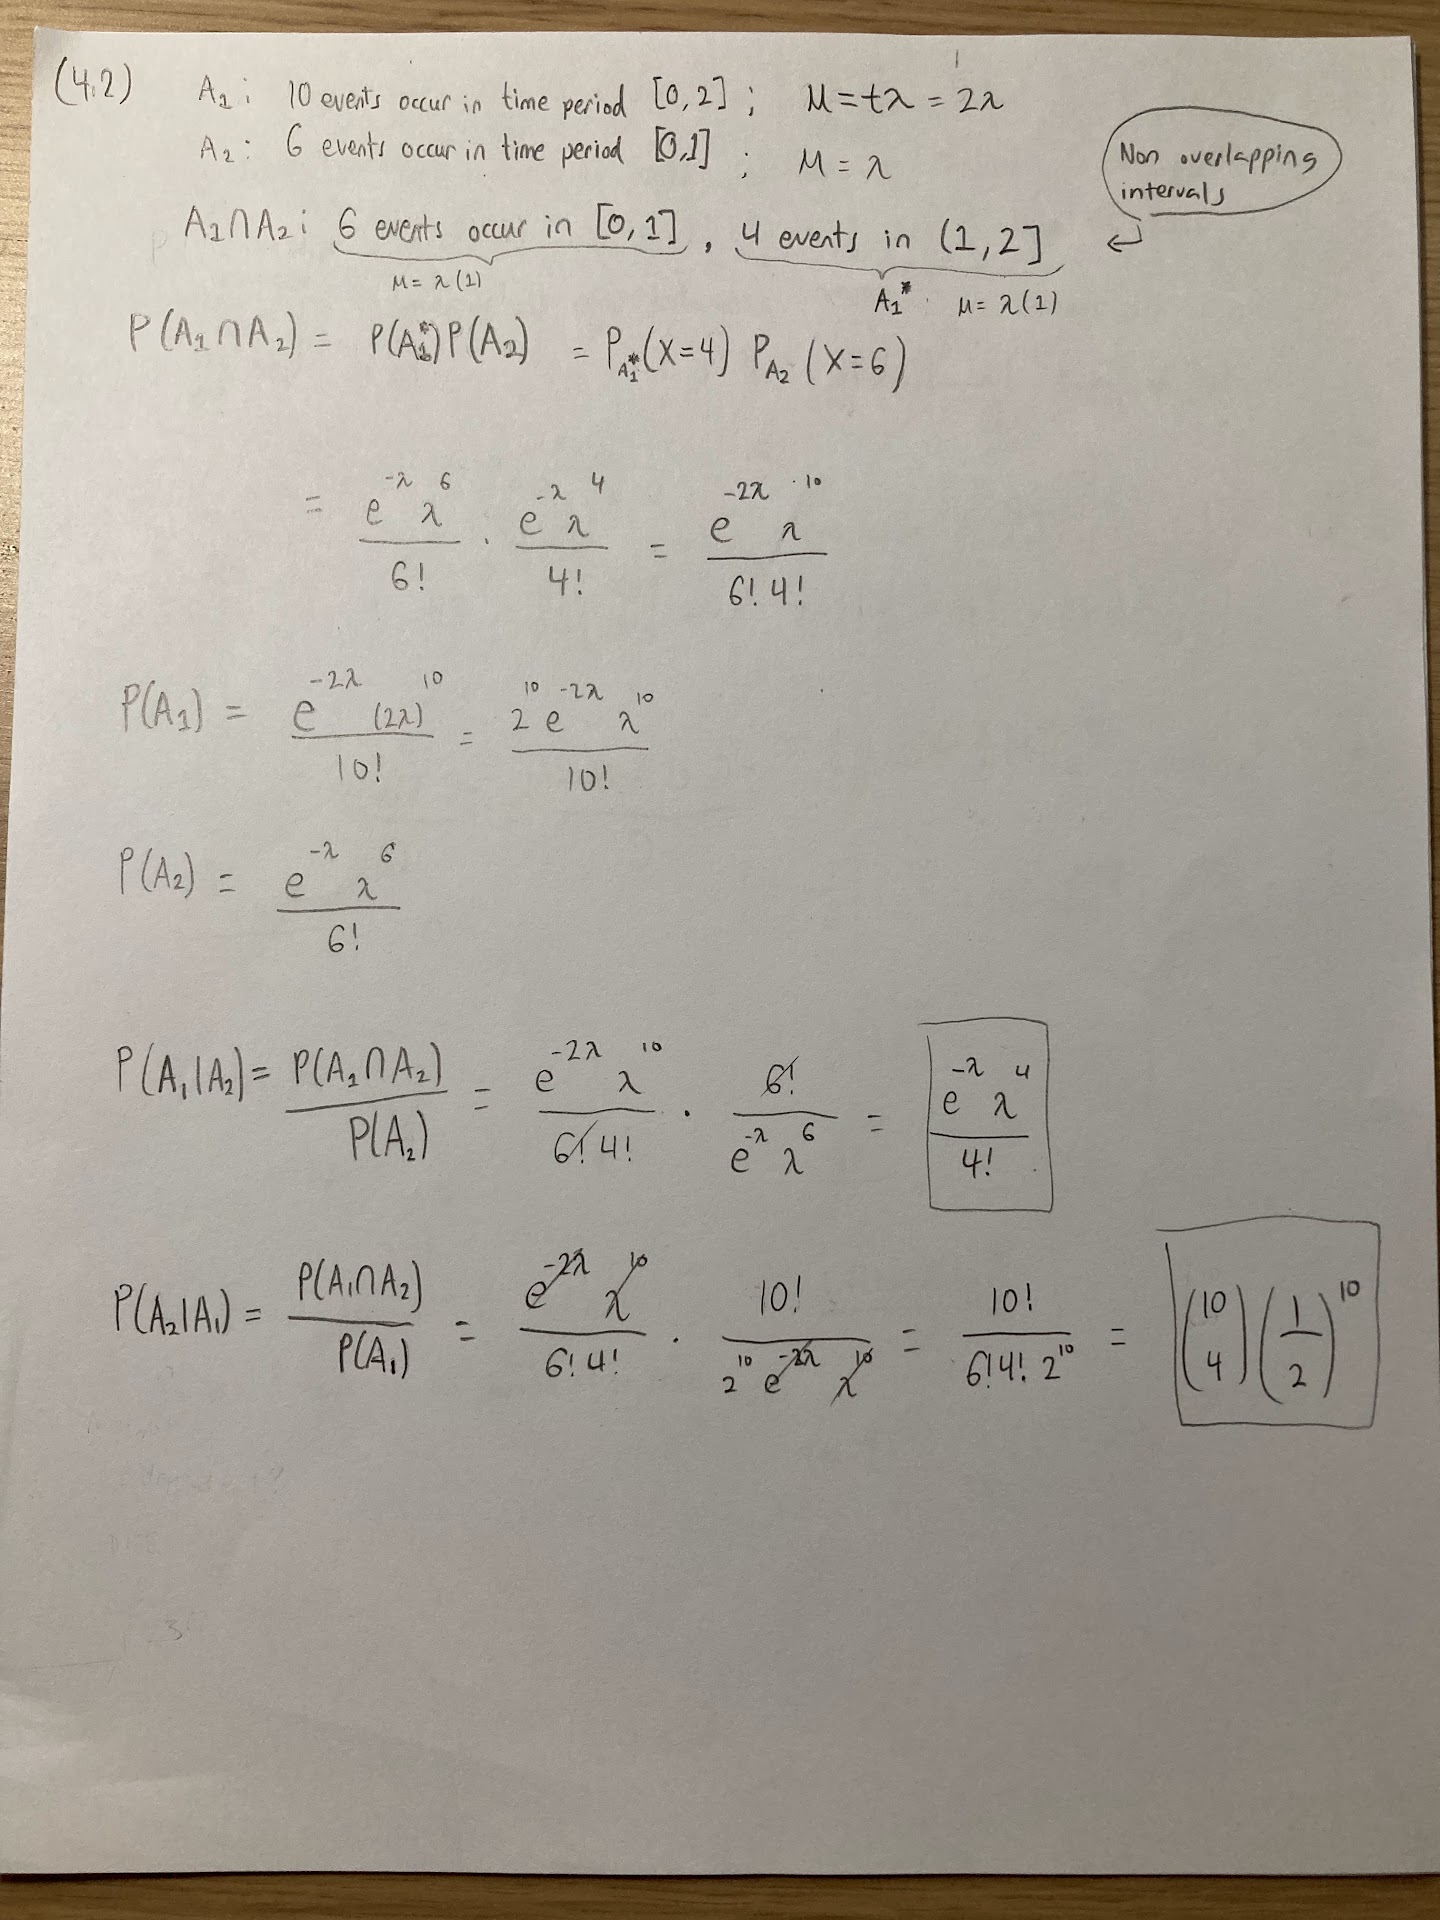 (4.2) A₁: 10 events occur in time period [0,2]; μ = tλ = 2λ
A₂: 6 events occur in time period [0,1]; μ = λ
Non overlapping
intervals
A₁∩A₂: 6 events occur in [0,1], 4 events in (1,2] ↩
μ = λ(1) A₁* μ = λ(1)
P(A₁∩A₂) = P(A₁*)P(A₂) = P_{A₁*}(X=4) P_{A₂}(X=6)
= e^{-λ} λ^6 / 6! · e^{-λ} λ^4 / 4! = e^{-2λ} λ^{10} / 6! 4!
P(A₁) = e^{-2λ} (2λ)^{10} / 10! = 2^{10} e^{-2λ} λ^{10} / 10!
P(A₂) = e^{-λ} λ^6 / 6!
P(A₁|A₂) = P(A₁∩A₂) / P(A₂) = e^{-2λ} λ^{10} / 6! 4! · 6! / e^{-λ} λ^6 = e^{-λ} λ^4 / 4!
P(A₂|A₁) = P(A₁∩A₂) / P(A₁) = e^{-2λ} λ^{10} / 6! 4! · 10! / 2^{10} e^{-2λ} λ^{10} = 10! / 6! 4! 2^{10} = (10 4) (1/2)^{10}